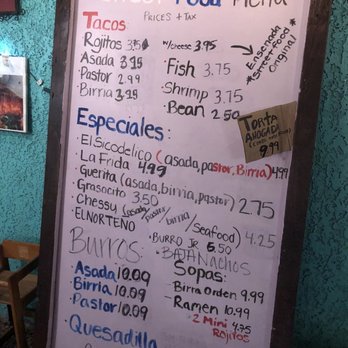 Street Food Menu
PRICES + TAX
Tacos
Rojitos 3.50 w/cheese 3.95
Asada 3.25
Pastor 2.99
Birria 3.25
Fish 3.75
Shrimp 3.75
Bean 2.50
*Ensenada
*Street food
Original*
TORTA
AHOGADA
9.99
Especiales:
El Sicodelico (asada, pastor, Birria) 4.99
La Frida 4.99
Guerita (asada, birria, pastor) 2.75
Grasocito 3.50
Chessy (asada/pastor/birria/Seafood) 4.25
EL NORTENO
BURRO JR 6.50
BAJA NACHOS
Burros:
Asada 10.09
Birria 10.09
Pastor 10.09
Sopas:
Birra Orden 9.99
Ramen 10.99
2 Mini 4.75
Rojitos
Quesadilla